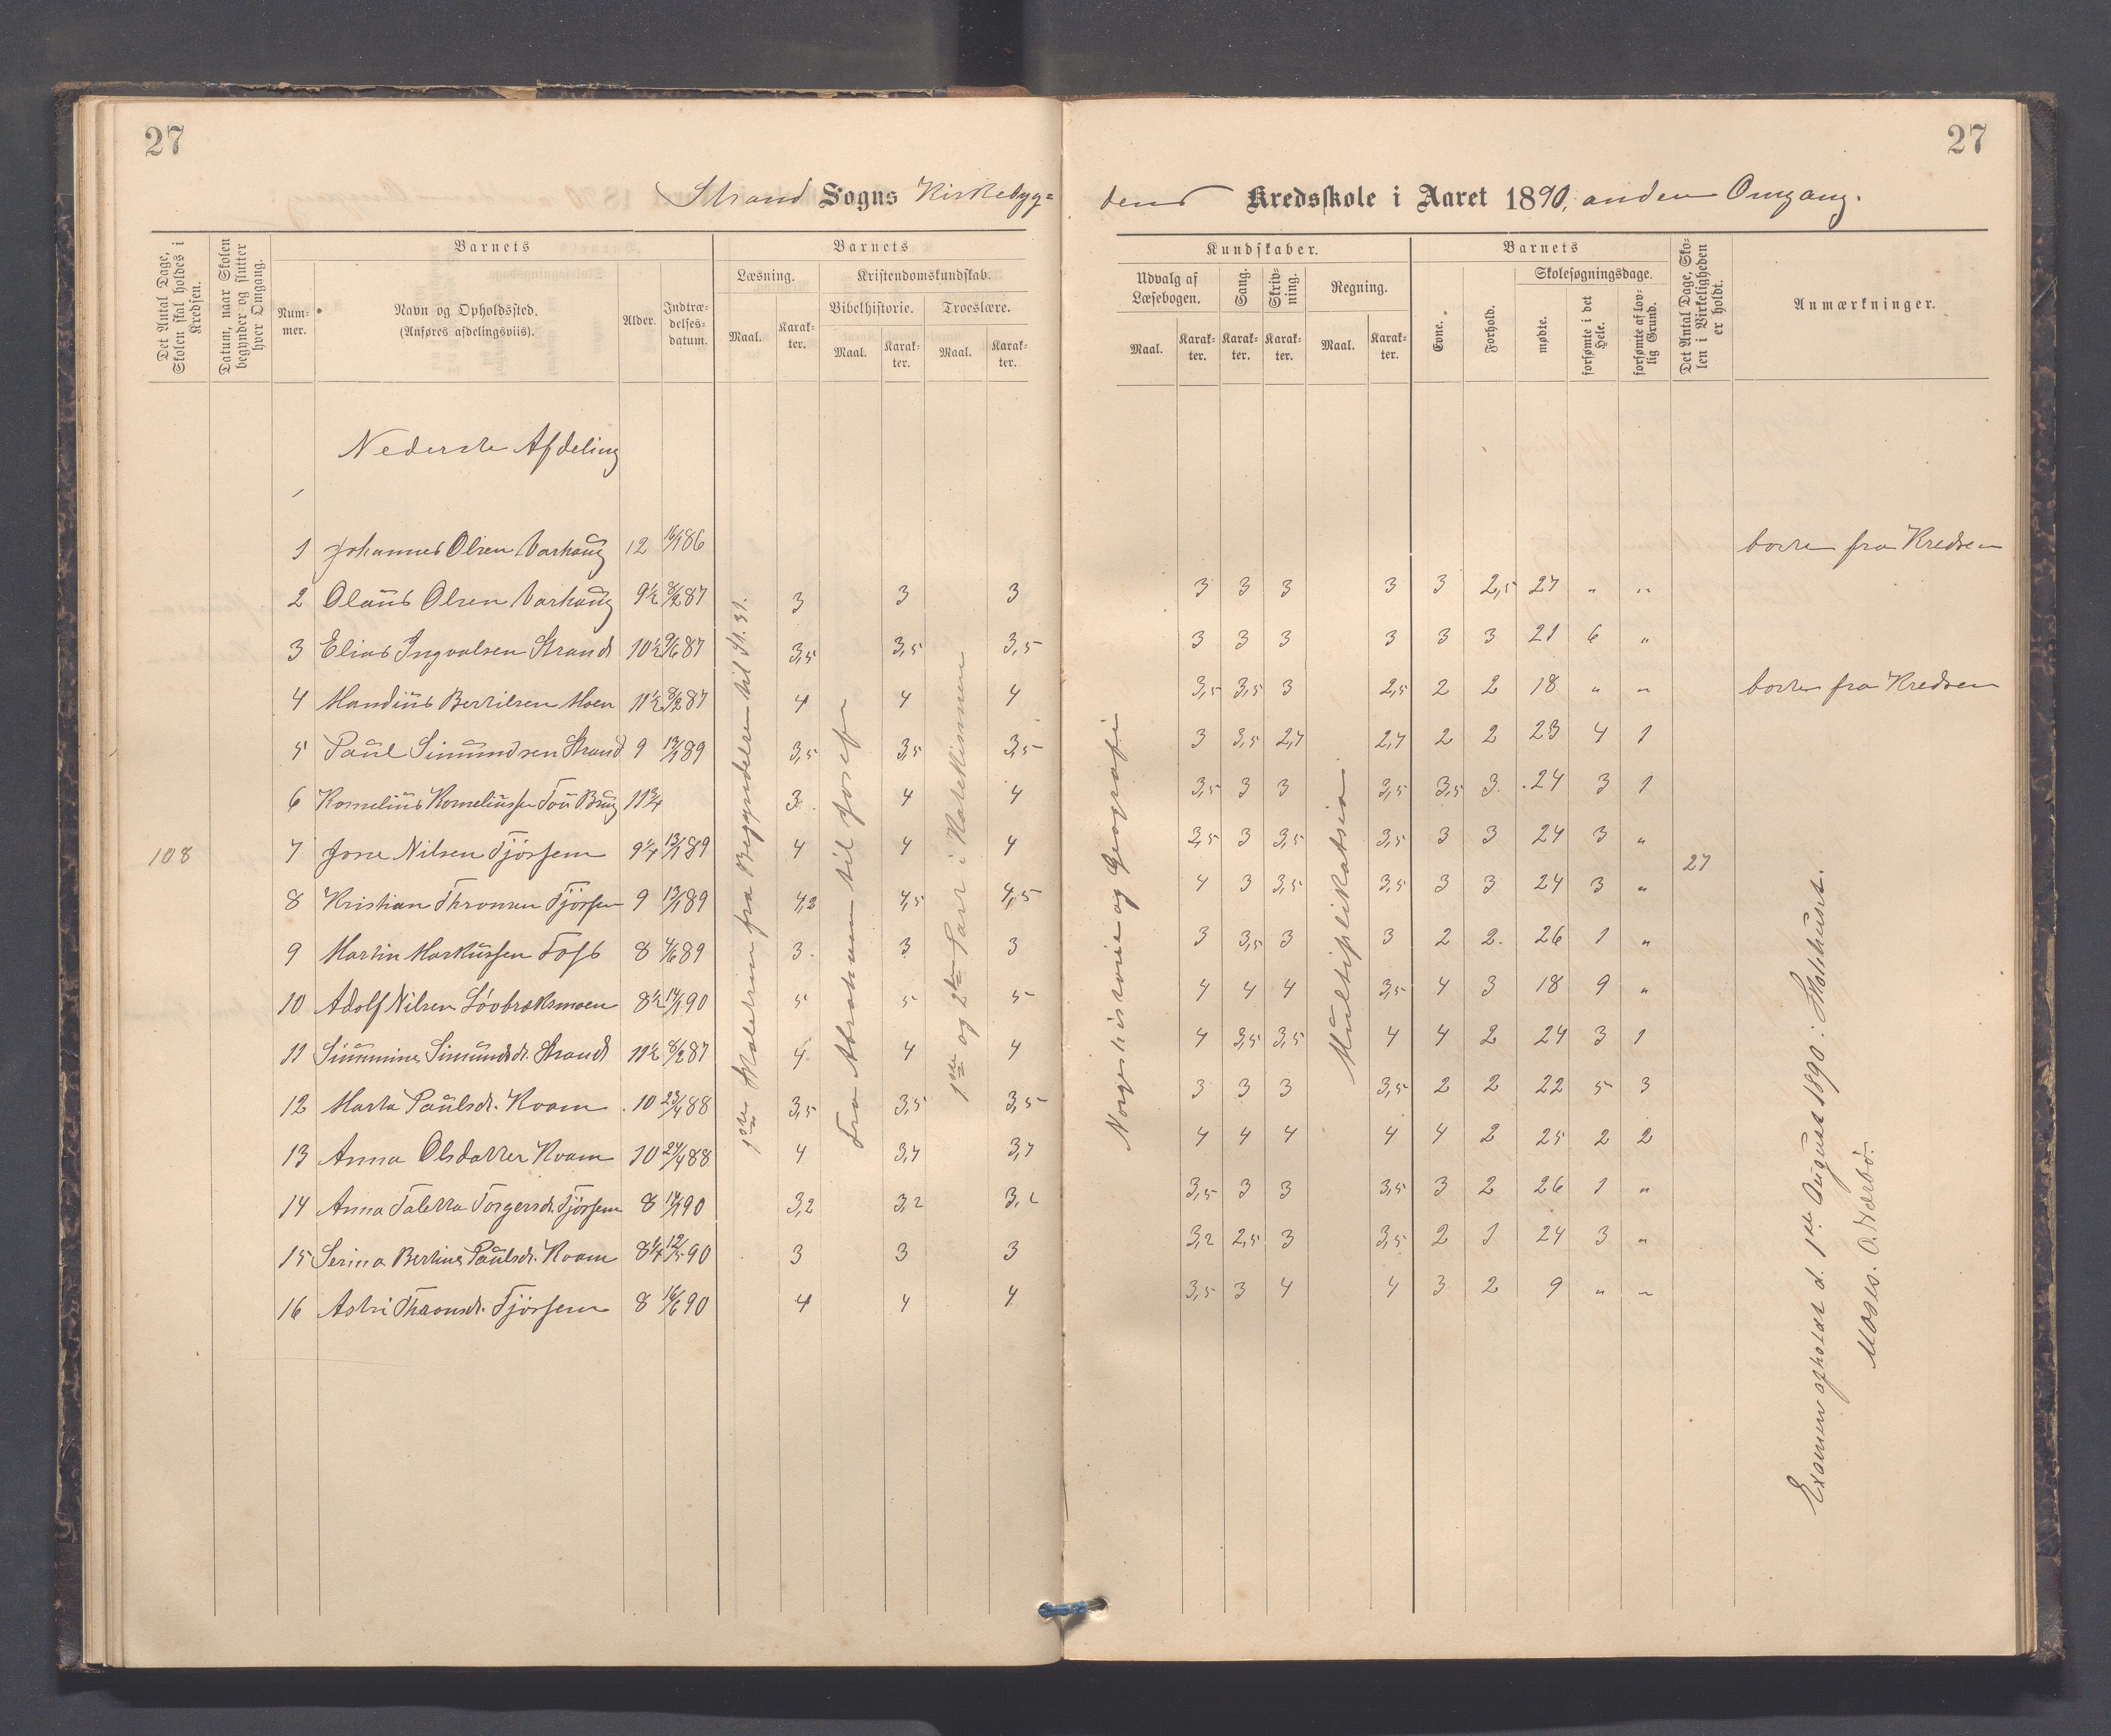 27
27
Strand Sogns Kirkebyg=
dens Kredsskole i Aaret 1890, anden Omgang.
Det Antal Dage, Skolen skal holdes i Kredsen.
Datum, naar Skolen begynder og slutter hver Omgang.
Barnets
Num-mer.
Navn og Opholdssted. (Anføres afdelingsviis).
Alder.
Indtræ-delses-datum.
Barnets
Læsning.
Maal.
Karak-ter.
Kristendomskundskab.
Bibelhistorie.
Maal.
Karak-ter.
Troeslære.
Maal.
Karak-ter.
Kundskaber.
Udvalg af Læsebogen.
Maal.
Karak-ter.
Sang.
Karak-ter.
Skriv-ning.
Karak-ter.
Regning.
Maal.
Karak-ter.
Barnets
Evne.
Forhold.
Skolesøgningsdage.
mødte.
forsømte i det Hele.
forsømte af lov-lig Grund.
Det Antal Dage, Sko-len i Virkeligheden er holdt.
Anmærkninger.
Nederste Afdeling
1 Johannes Olsen Varhaug 12 16/1 86 borte fra Kredsen
2 Olaus Olsen Varhaug 9½ 8/2 87 3 3 3 3 3 3 3 3 2,5 27 " "
3 Elias Ingvalsen Strand 10½ 9/6 87 3,5 3,5 3,5 3 3 3 3 3 3 21 6 "
4 Mandius Bertilsen Moen 11½ 8/2 87 4 4 4 3,5 3,5 3 2,5 2 2 18 " " borte fra Kredsen
5 Paul Simundsen Strand 9 13/1 89 3,5 3,5 3,5 3 3,5 2,7 2,7 2 2 23 4 1
6 Kornelius Korneliussen Tou Brug 11¾ 3 4 4 3,5 3 3 3,5 3,5 3 24 3 1
108 7 Jone Nilsen Tjössem 9¼ 13/1 89 4 4 4 3,5 3 3,5 3,5 3 3 24 3 " 27
8 Kristian Thronsen Tjössem 9 13/1 89 4,2 4,5 4,5 4 3 3,5 3,5 3 3 24 3 "
9 Martin Markussen Foss 8 4/6 89 3 3 3 3 3,5 3 3 2 2 26 1 "
10 Adolf Nilsen Lövbræksmoen 8½ 14/1 90 5 5 5 4 4 4 3,5 4 3 18 9 "
11 Simmine Simundsd. Strand 11½ 8/2 87 4 4 4 4 3,5 3,5 4 4 2 24 3 1
12 Marta Paulsdt. Kvam 10 23/4 88 3,5 3,5 3,5 3 3 3 3,5 2 2 22 5 3
13 Anna Olsdatter Kvam 10 24/4 88 4 3,7 3,7 4 4 4 4 4 2 25 2 2
14 Anna Taletta Torgersdt. Tjössem 8 14/1 90 3,2 3,2 3,2 3,5 3 3 3,5 3 2 26 1 "
15 Serina Bertine Paulsdt. Kvam 8¼ 12/5 90 3 3 3 3,2 2,5 3 3,5 2 1 24 3 "
16 Astri Thronsdt. Tjössem 8 16/6 90 4 4 4 3,5 3 4 4 3 2 9 " "
fra Begyndelsen til St. 31.
Fra Abraham til Josef
1ste og 2den Part i Katekismen
Norgeshistorie og Geografi
Multiplikation
Examen afholdt d. 1ste August 1890 i Skolehuset.
Moses. O. Nærbö.